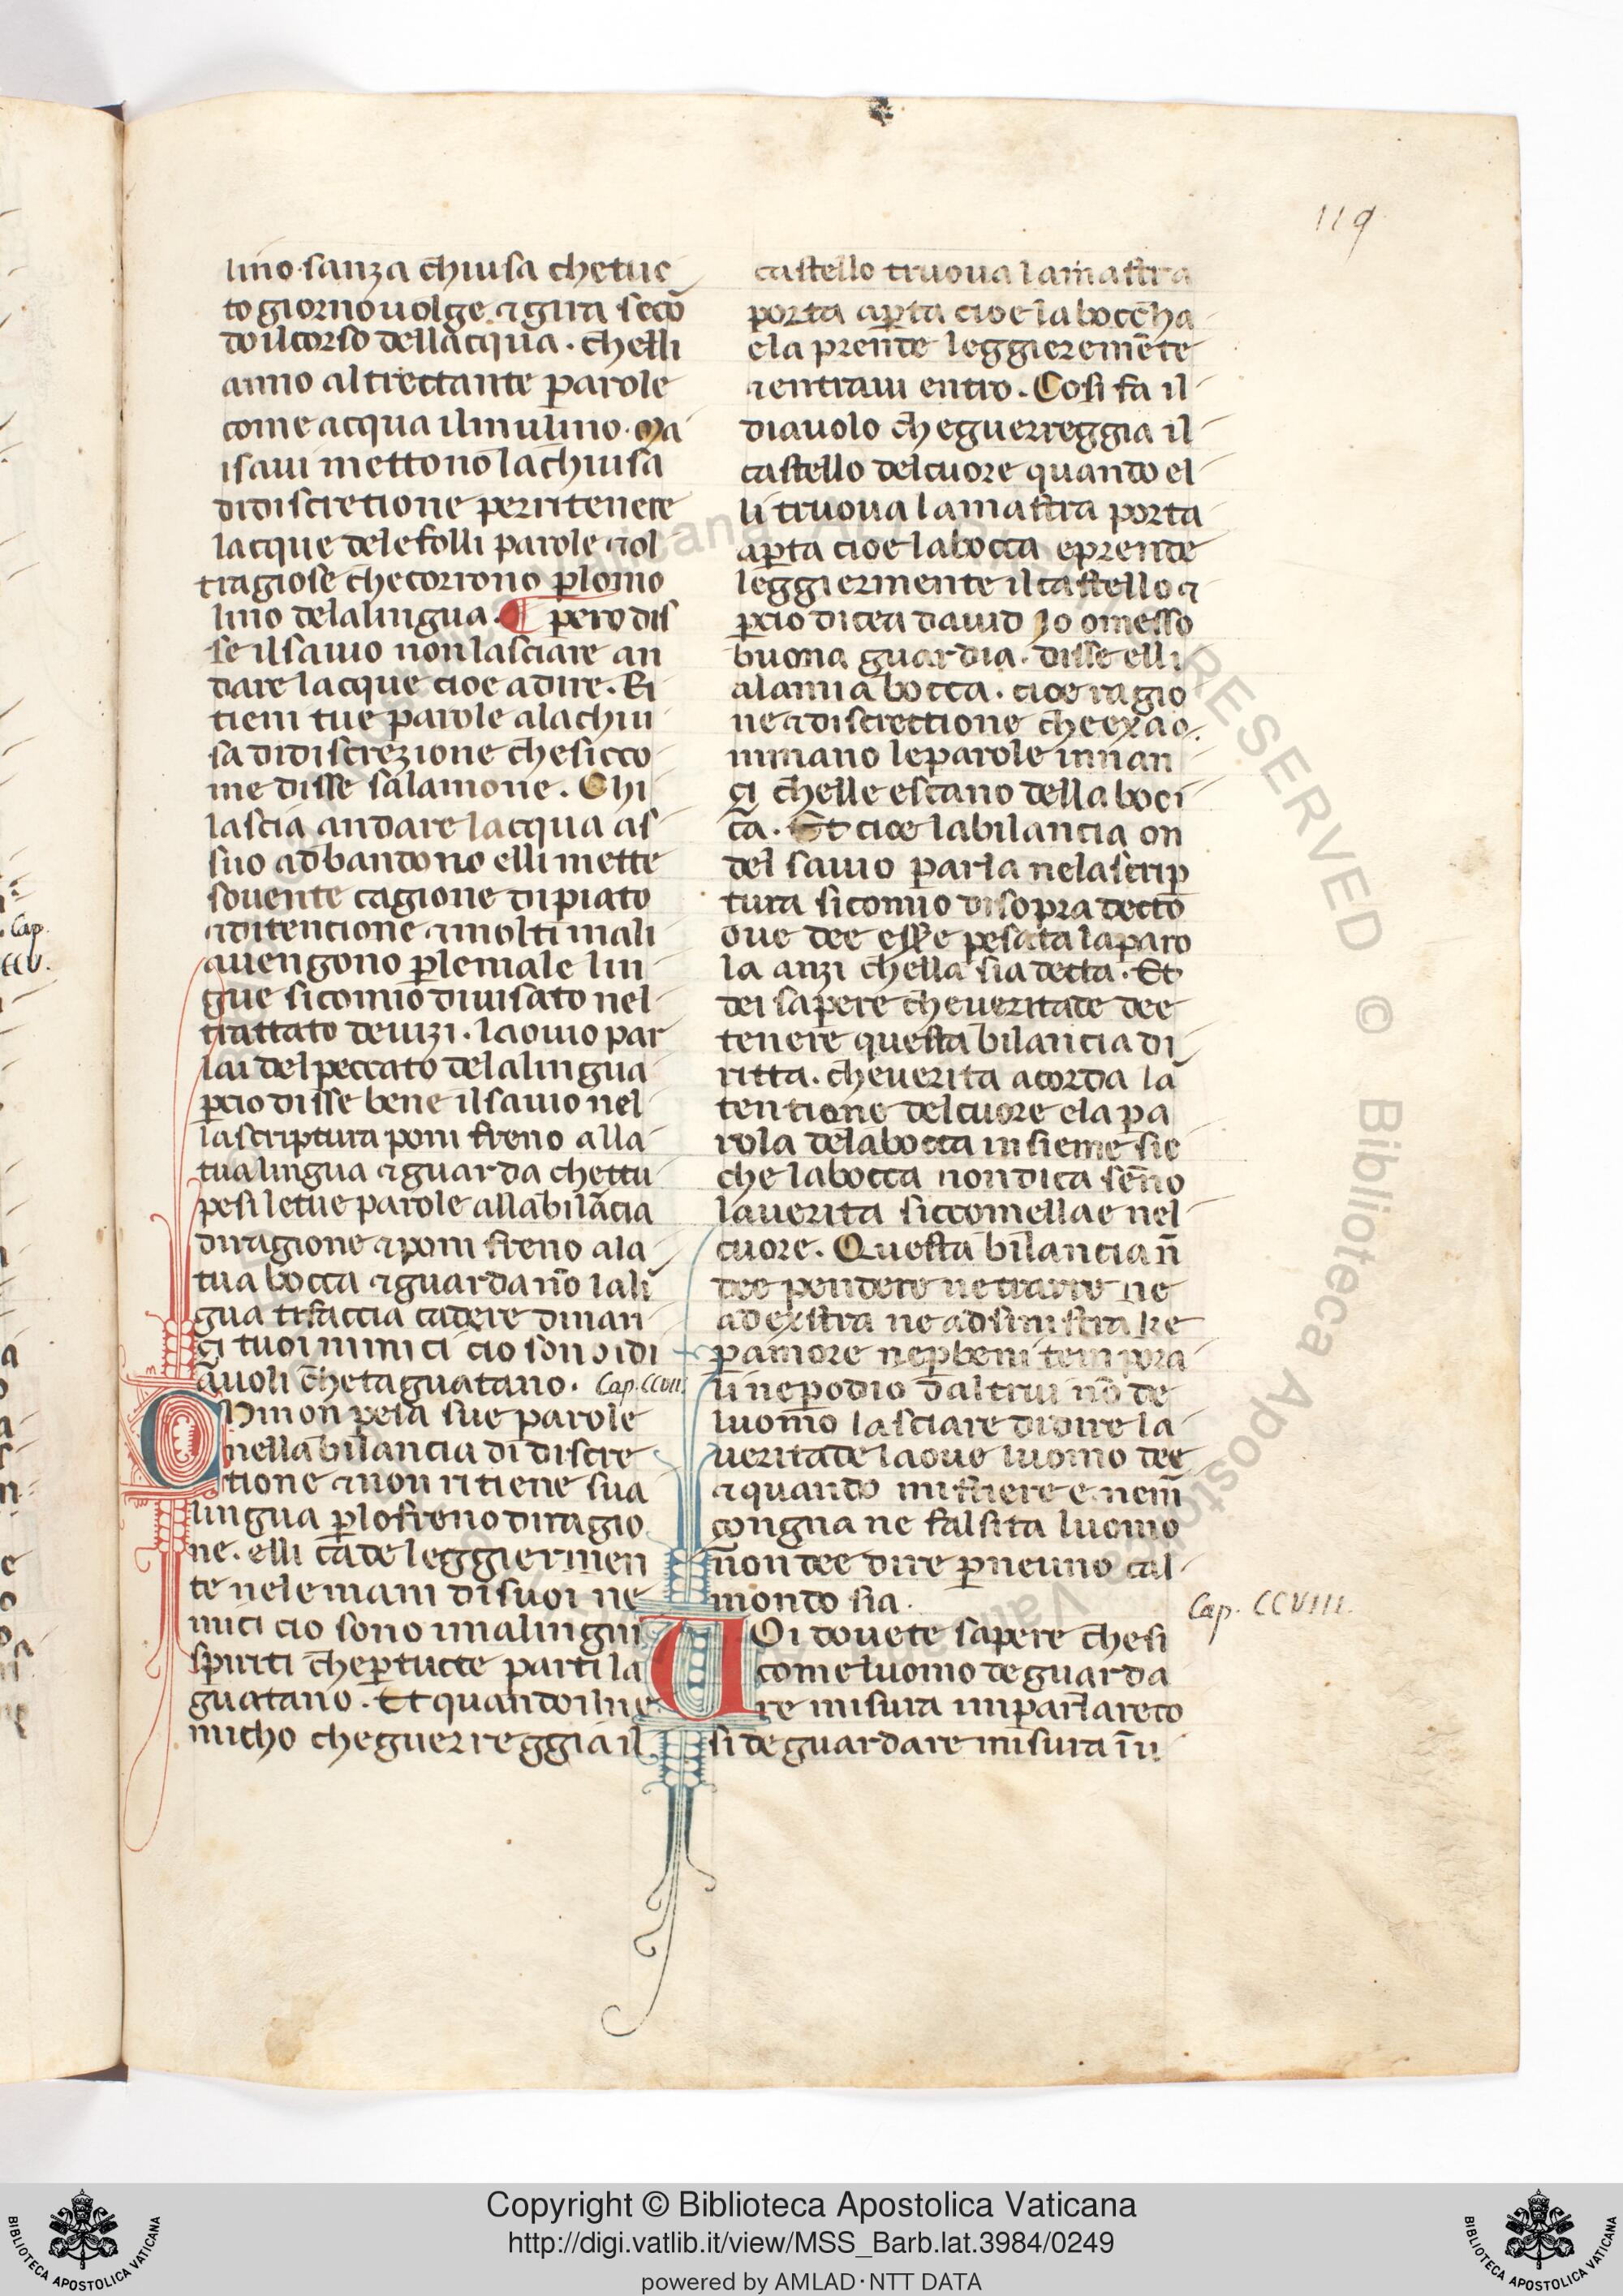 119
lino·sanza chiusa chetuc
to giorno uolge ⁊ gira secō
do il corso dellacqua· chelli
anno altrettante ꝑarole
come acqua ilmulino· Ma
isaui mettono lachiusa
didiscretione per ritenere
lacque delefolli parole ⁊ol
tragiose che corrono ꝑ lomo
lino delalingua· ¶ pero dis
se il sauio non lasciare an
dare lacque cioe adire· Ri
tieni tue ꝑarole alachiu
sa didiscrezione che sicco
me disse salamone· Chi
lascia andare lacqua as
suo abbandono elli mette
souente cagione di piato
⁊ditencione ⁊molti mali
auengono ꝑlemale lin
gue sicomio diuisato nel
trattato deuizi· laouio par
lai del peccato delalingua
ꝑcio disse bene il sauio nel
la scriptura poni freno alla
tua lingua ⁊guarda chettu
pesi letue parole alla bilācia
diragione ⁊poni freno ala
tua bocca ⁊guarda nō lalī
gua tifaccia cadere dinan
çi tuoi nimici cio sono idi
auoli che taguatano· Cap. CCVII
Chi non pesa sue parole
nella bilancia di discre
tione ⁊non ritiene sua
lingua ꝑlo freno diragio
ne· elli cade leggiermen
te nele mani di suoi ne
mici cio sono i malingni
spiriti che ꝑ tucte parti la
guatano· Et quando il ne
micho che guerreggia il
castello truoua lamastra
porta aꝑta cioe la boccha
ela prende leggieremēte
⁊entraui entro· Cosi fa il
diauolo che guerreggia il
castello del cuore quando el
li truoua lamastra porta
aꝑta cioe labocca eprende
leggiermente il castello ⁊
ꝑcio dicea dauid Io o messo
buona guardia· disse elli
alamia bocca· cioe ragio
ne ⁊discrettione che exa
minano le parole innan
çi chelle escano della boc
ca· Et cioe labilancia on
del sauio parla nela scrip
tura sicomio disopra decto
oue dee esse pesata la paro
la anzi chella sia detta· Et
dei sapere che ueritade dee
tenere questa bilancia di
ritta· che uerita acorda la
tentione del cuore ela pa
rola delabocca insieme sic
che labocca non dica se nō
lauerita siccomellae nel
cuore· Questa bilancia n̄
dee pendere ne trarre ne
adextra ne adsinistra ke
ꝑ amore ne ꝑ beni tempora
li ne ꝑ odio daltrui nō de
luomo lasciare didire la
ueritade laoue luomo dee
⁊quando mistiere e. ne m̄
çongna ne falsita luomo
non dee dire ꝑ neuno cal
mondo sia·
Cap. CCVIII.
Uoi douete sapere che si
come luomo de guarda
re misura in parlare co
si de guardare misura ī u
Cap.
CCV.
Copyright © Biblioteca Apostolica Vaticana
http://digi.vatlib.it/view/MSS_Barb.lat.3984/0249
powered by AMLAD·NTT DATA
BIBLIOTECA APOSTOLICA VATICANA
BIBLIOTECA APOSTOLICA VATICANA